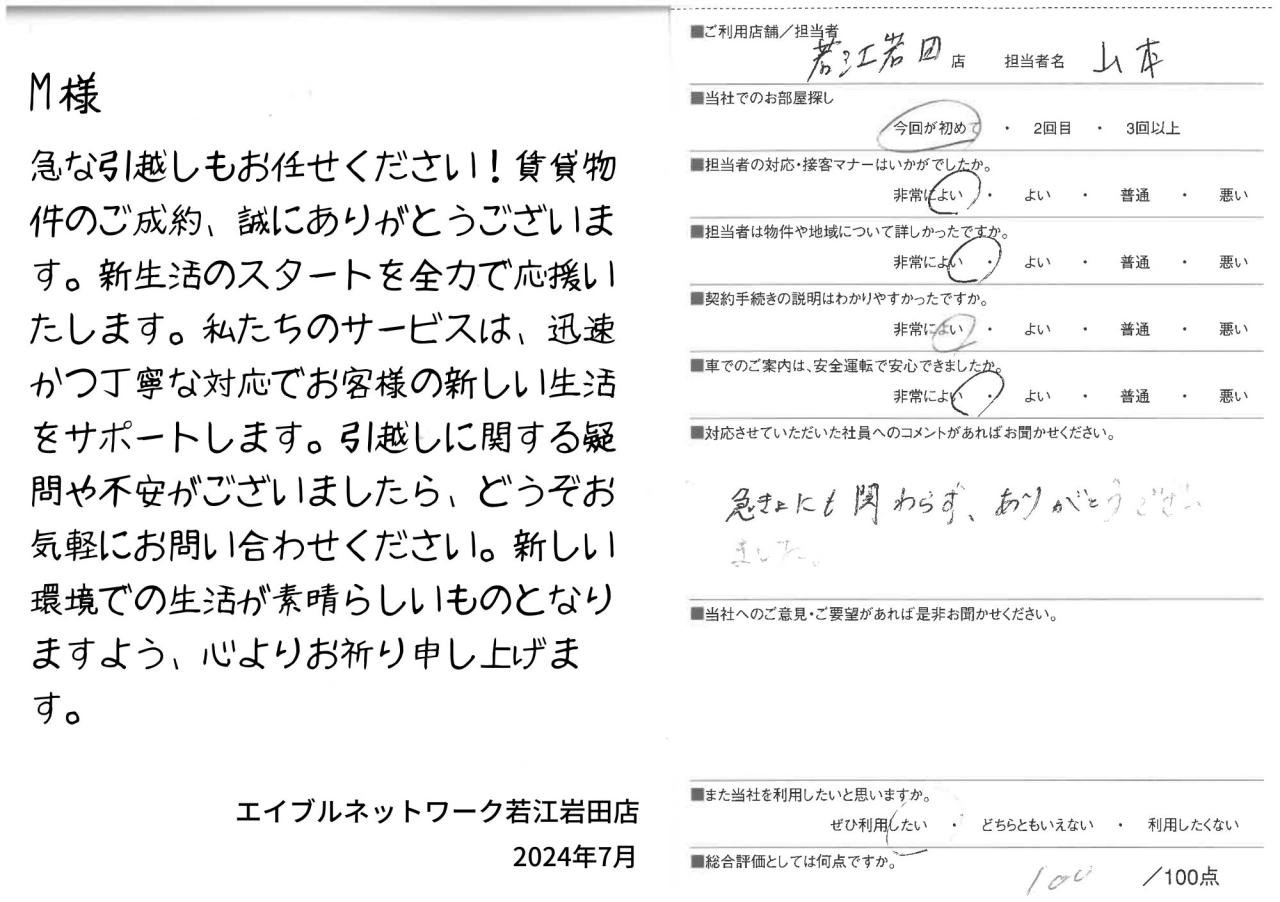 M様
急な引越しもお任せください！賃貸物
件のご成約、誠にありがとうございま
す。新生活のスタートを全力で応援い
たします。私たちのサービスは、迅速
かつ丁寧な対応でお客様の新しい生活
をサポートします。引越しに関する疑
問や不安がございましたら、どうぞお
気軽にお問い合わせください。新しい
環境での生活が素晴らしいものとなり
ますよう、心よりお祈り申し上げま
す。
エイブルネットワーク若江岩田店
2024年7月
■ご利用店舗／担当者
若江岩田 店 担当者名 山本
■当社でのお部屋探し
今回が初めて ・ 2回目 ・ 3回以上
■担当者の対応・接客マナーはいかがでしたか。
非常によい ・ よい ・ 普通 ・ 悪い
■担当者は物件や地域について詳しかったですか。
非常によい ・ よい ・ 普通 ・ 悪い
■契約手続きの説明はわかりやすかったですか。
非常によい ・ よい ・ 普通 ・ 悪い
■車でのご案内は、安全運転で安心できましたか。
非常によい ・ よい ・ 普通 ・ 悪い
■対応させていただいた社員へのコメントがあればお聞かせください。
急きょにも関わらず、ありがとうござい
ました。
■当社へのご意見・ご要望があれば是非お聞かせください。
■また当社を利用したいと思いますか。
ぜひ利用したい ・ どちらともいえない ・ 利用したくない
■総合評価としては何点ですか。
100 ／100点